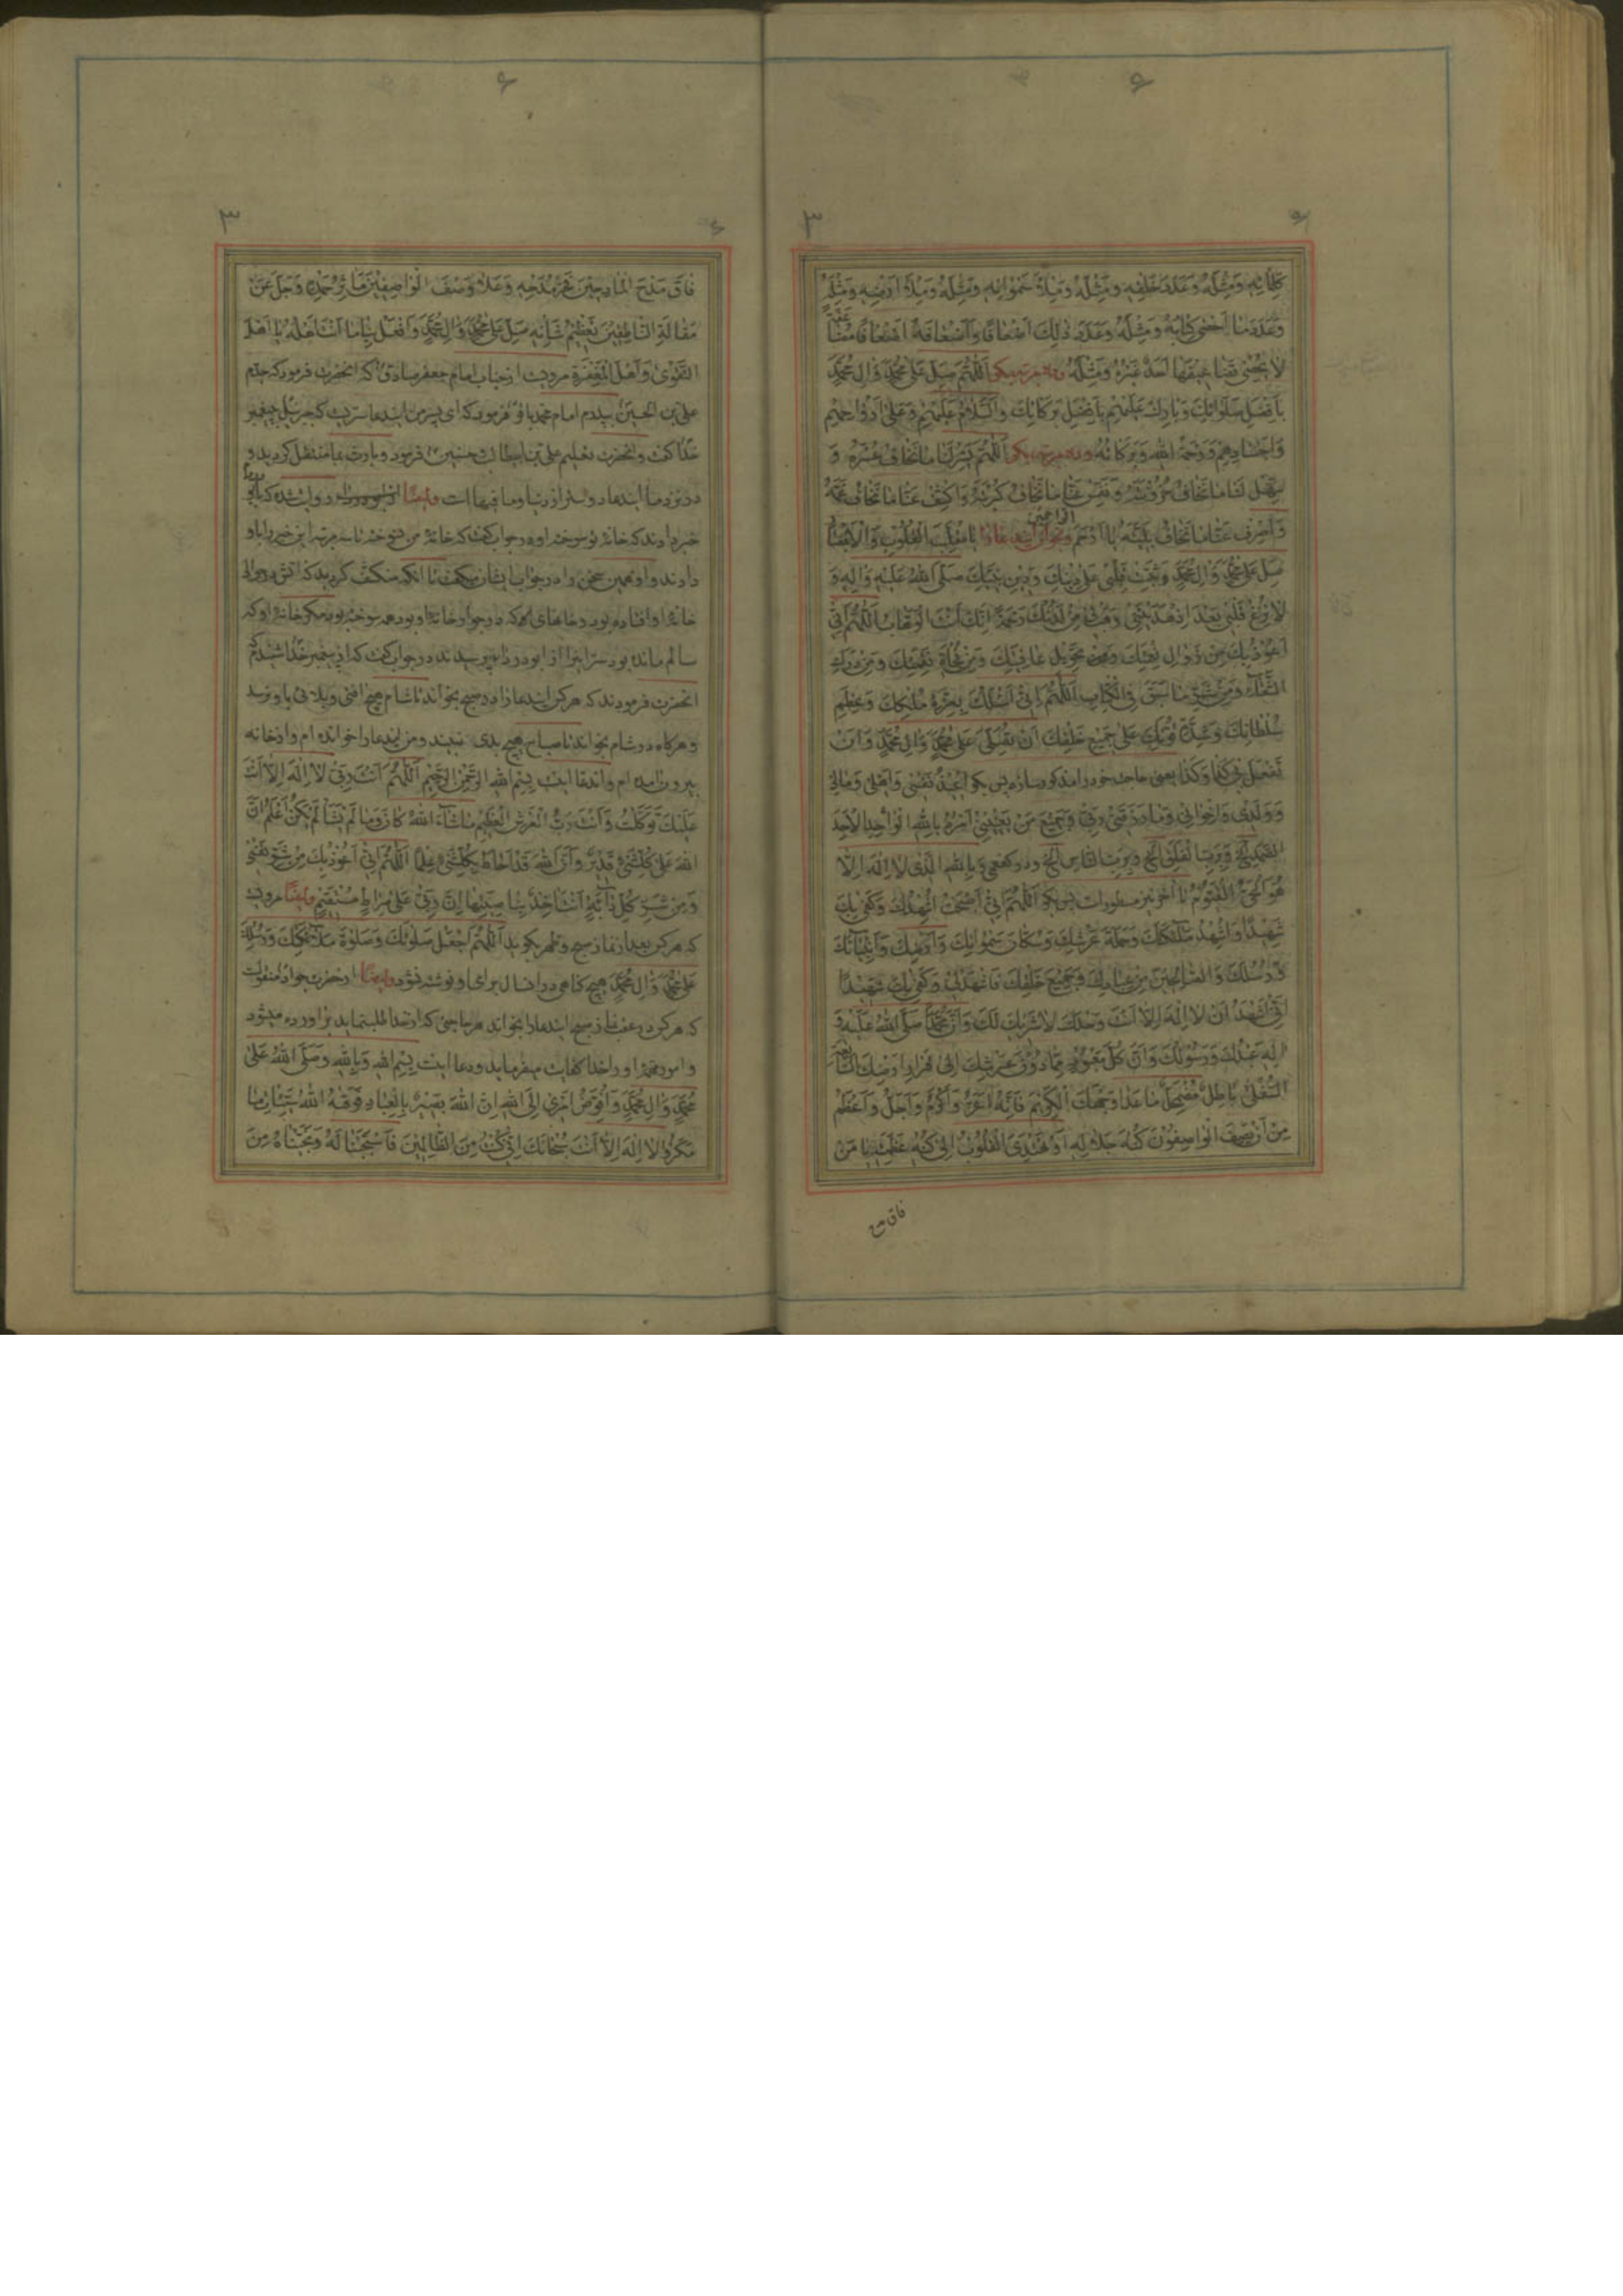 كَلِمَاتِهِ وَمِثْلَهُ وَعَدَدَ خَلْقِهِ وَمِثْلَهُ وَمِلْأَ سَمٰوَاتِهِ وَمِثْلَهُ وَمِلْأَ اَرْضِهِ وَمِثْلَهُ
وَعَدَدَ مَا اَحْصٰى كِتَابُهُ وَمِثْلَهُ وَعَدَدَ ذٰلِكَ اَضْعَافًا وَاَضْعَافَهُ اَضْعَافًا مُضَاعَفَةً
لَا يُحْصٖى تَضَاعِيفَهَا اَحَدٌ غَيْرُهُ وَمِثْلَهُ وده مرتبه بکو اَللّٰهُمَّ صَلِّ عَلٰى مُحَمَّدٍ وَاٰلِ مُحَمَّدٍ
بِاَفْضَلِ صَلَوَاتِكَ وَبَارِكْ عَلَيْهِمْ بِاَفْضَلِ بَرَكَاتِكَ وَالسَّلَامُ عَلَيْهِمْ وَعَلٰى اَرْوَاحِهِمْ
وَاَجْسَادِهِمْ وَرَحْمَةُ اللهِ وَبَرَكَاتُهُ وده مرتبه بکو اَللّٰهُمَّ يَسِّرْ لَنَا مَا نَخَافُ عُسْرَهُ وَ
سَهِّلْ لَنَا مَا نَخَافُ حُزُونَتَهُ وَنَفِّسْ عَنَّا مَا نَخَافُ كُرْبَتَهُ وَاكْشِفْ عَنَّا مَا نَخَافُ غَمَّهُ
وَاصْرِفْ عَنَّا مَا نَخَافُ بَلِيَّتَهُ يَا اَرْحَمَ الراحمين وبخوان اینُدعا را يَا مُقَلِّبَ الْقُلُوبِ وَالْاَبْصَارِ
صَلِّ عَلٰى مُحَمَّدٍ وَاٰلِ مُحَمَّدٍ وَثَبِّتْ قَلْبِى عَلٰى دِينِكَ وَدِينِ نَبِيِّكَ صَلَّى اللهُ عَلَيْهِ وَاٰلِهِ وَ
لَا تُزِغْ قَلْبِى بَعْدَ اِذْ هَدَيْتَنِى وَهَبْ لِى مِنْ لَدُنْكَ رَحْمَةً اِنَّكَ اَنْتَ الْوَهَّابُ اَللّٰهُمَّ اِنِّى
اَعُوذُ بِكَ مِنْ زَوَالِ نِعْمَتِكَ وَمِنْ تَحْوِيلِ عَافِيَتِكَ وَمِنْ فُجْأَةِ نَقِمَتِكَ وَمِنْ دَرَكِ
الشَّقَاءِ وَمِنْ شَرِّ مَا سَبَقَ فِى الْكِتَابِ اَللّٰهُمَّ اِنِّى اَسْئَلُكَ بِعِزَّةِ مُلْكِكَ وَعَظِيمِ
سُلْطَانِكَ وَشِدَّةِ قُوَّتِكَ عَلٰى جَمِيعِ خَلْقِكَ اَنْ تُصَلِّىَ عَلٰى مُحَمَّدٍ وَاٰلِ مُحَمَّدٍ وَاَنْ
تَفْعَلَ بِى كَذَا وَكَذَا یعنی حاجت خود را مذکور سازد پس بکو اُعِيذُ نَفْسِى وَاَهْلِى وَمَالِى
وَوَلَدِى وَاِخْوَانِى وَمَا رَزَقَنِى رَبِّى وَجَمِيعَ مَنْ يَعْنِينِى اَمْرُهُ بِاللهِ الْوَاحِدِ الْاَحَدِ
الصَّمَدِ الخ وَبِرَبِّ الْفَلَقِ الخ وَبِرَبِّ النَّاسِ الخ بِاللهِ الَّذِى لَا اِلٰهَ اِلَّا
هُوَ الْحَىُّ الْقَيُّومُ تا آخر پس بکو اَللّٰهُمَّ اِنِّى اَصْبَحْتُ اُشْهِدُكَ وَكَفٰى بِكَ
شَهِيدًا وَاُشْهِدُ مَلٰئِكَتَكَ وَحَمَلَةَ عَرْشِكَ وَسُكَّانَ سَمٰوَاتِكَ وَاَرْضِكَ وَاَنْبِيَائَكَ
وَرُسُلَكَ وَالصَّالِحِينَ مِنْ عِبَادِكَ وَجَمِيعَ خَلْقِكَ فَاشْهَدْ لِى وَكَفٰى بِكَ شَهِيدًا
اِنِّى اَشْهَدُ اَنْ لَا اِلٰهَ اِلَّا اَنْتَ وَحْدَكَ لَا شَرِيكَ لَكَ وَاَنَّ مُحَمَّدًا صَلَّى اللهُ عَلَيْهِ وَ
اٰلِهِ عَبْدُكَ وَرَسُولُكَ وَاَنَّ كُلَّ مَعْبُودٍ مِمَّا دُونَ عَرْشِكَ اِلٰى قَرَارِ اَرْضِكَ السَّابِعَةِ
السُّفْلٰى بَاطِلٌ مُضْمَحِلٌّ مَا عَدَا وَجْهِكَ الْكَرِيمِ فَاِنَّهُ اَعَزُّ وَاَكْرَمُ وَاَجَلُّ وَاَعْظَمُ
مِنْ اَنْ يَصِفَ الْوَاصِفُونَ كُنْهَ جَلَالِهِ اَوْ تَهْتَدِىَ الْقُلُوبُ اِلٰى كُنْهِ عَظَمَتِهِ يَا مَنْ
فاق مدح
فَاقَ مَدْحَ الْمَادِحِينَ فَخْرُ مَدْحِهِ وَعَلَا وَصْفَ الْوَاصِفِينَ مَاٰثِرُ حَمْدِهِ وَجَلَّ عَنْ
مَقَالَةِ النَّاطِقِينَ تَعْظِيمُ شَأْنِهِ صَلِّ عَلٰى مُحَمَّدٍ وَاٰلِ مُحَمَّدٍ وَافْعَلْ بِنَا مَا اَنْتَ اَهْلُهُ يَا اَهْلَ
التَّقْوٰى وَاَهْلَ الْمَغْفِرَةِ مرویست از جناب امام جعفر صادق که انحضرت فرمود که جدم
علی بن الحسین بپدرم امام محمد باقر فرمود که ای پسر من ایندعا سریست که جبرئیل به پیغمبر
خدا گفت و انحضرت تعلیم علی بن ابیطالب فرمود و بارث بما منتقل کردید و
در نزد ما ایندعا دوستر از دنیا و ما فیها است وایضًا روایت شده که باو
خبر دادند که خانهٔ تو سوخته او در جواب گفت که خانهٔ من نسوخته تا سه مرتبه این خبر را باو
دادند و او همین سخن را در جواب ایشان میگفت تا انکه منکشف کردید که اتش در حوالی
خانهٔ او افتاده بود و خانهای که در جوار خانهٔ او بود همه سوخته بود مکر خانهٔ او که
سالم مانده بود سرّ اینرا از ابو دردا پرسیدند در جواب گفت که از پیغمبر خدا شنیدم که
انحضرت فرمودند که هر کس ایندعا را در صبح بخواند تا شام هیچ افتی و بلائی باو نرسد
و هرکاه در شام بخواند تا صباح هیچ بدی نبیند و من ایندعا را خوانده ام و از خانه
بیرون امده ام و اندعا اینست بِسْمِ اللهِ الرَّحْمٰنِ الرَّحِيمِ اَللّٰهُمَّ اَنْتَ رَبِّى لَا اِلٰهَ اِلَّا اَنْتَ
عَلَيْكَ تَوَكَّلْتُ وَاَنْتَ رَبُّ الْعَرْشِ الْعَظِيمِ مَا شَاءَ اللهُ كَانَ وَمَا لَمْ يَشَأْ لَمْ يَكُنْ اَعْلَمُ اَنَّ
اللهَ عَلٰى كُلِّ شَىْءٍ قَدِيرٌ وَاَنَّ اللهَ قَدْ اَحَاطَ بِكُلِّ شَىْءٍ عِلْمًا اَللّٰهُمَّ اِنِّى اَعُوذُ بِكَ مِنْ شَرِّ نَفْسِى
وَمِنْ شَرِّ كُلِّ دَابَّةٍ اَنْتَ اٰخِذٌ بِنَاصِيَتِهَا اِنَّ رَبِّى عَلٰى صِرَاطٍ مُسْتَقِيمٍ وایضًا مرویست
که هر کس بعد از نماز صبح و ظهر بکوید اَللّٰهُمَّ اجْعَلْ صَلَوَاتِكَ وَصَلٰوةَ مَلٰئِكَتِكَ وَرُسُلِكَ
عَلٰى مُحَمَّدٍ وَاٰلِ مُحَمَّدٍ هیچ کناهی در انسال برای او نوشته نشود وایضًا از حضرت جواد منقولست
که هر کس در عقب نماز صبح ایندعا را بخواند هر حاجتی که از خدا طلب نماید براورده میشود
و امور مهمهٔ او را خدا کفایت میفرماید و دعا اینست بِسْمِ اللهِ وَبِاللهِ وَصَلَّى اللهُ عَلٰى
مُحَمَّدٍ وَاٰلِ مُحَمَّدٍ وَاُفَوِّضُ اَمْرِى اِلَى اللهِ اِنَّ اللهَ بَصِيرٌ بِالْعِبَادِ فَوَقٰيهُ اللهُ سَيِّئَاتِ مَا
مَكَرُوا لَا اِلٰهَ اِلَّا اَنْتَ سُبْحَانَكَ اِنِّى كُنْتُ مِنَ الظَّالِمِينَ فَاسْتَجَبْنَا لَهُ وَنَجَّيْنَاهُ مِنَ